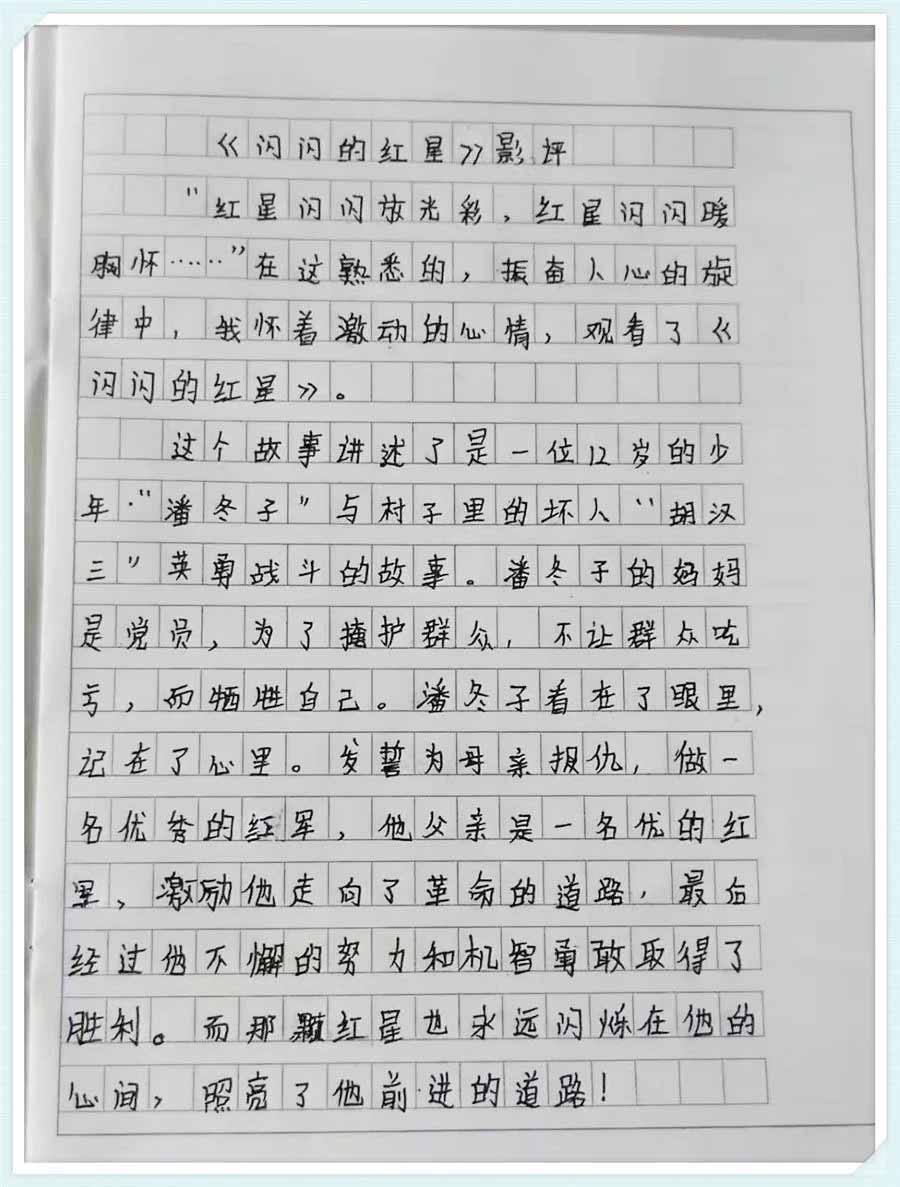 《闪闪的红星》影评
"红星闪闪放光彩，红星闪闪暖
胸怀……"在这熟悉的，振奋人心的旋
律中，我怀着激动的心情，观看了《
闪闪的红星》。
这个故事讲述了是一位12岁的少
年·"潘冬子"与村子里的坏人"胡汉
三"英勇战斗的故事。潘冬子的妈妈
是党员，为了掩护群众，不让群众吃
亏，而牺牲自己。潘冬子看在了眼里，
记在了心里。发誓为母亲报仇，做一
名优秀的红军，他父亲是一名优的红
军，激励他走向了革命的道路，最后
经过他不懈的努力和机智勇敢取得了
胜利。而那颗红星也永远闪烁在他的
心间，照亮了他前进的道路！